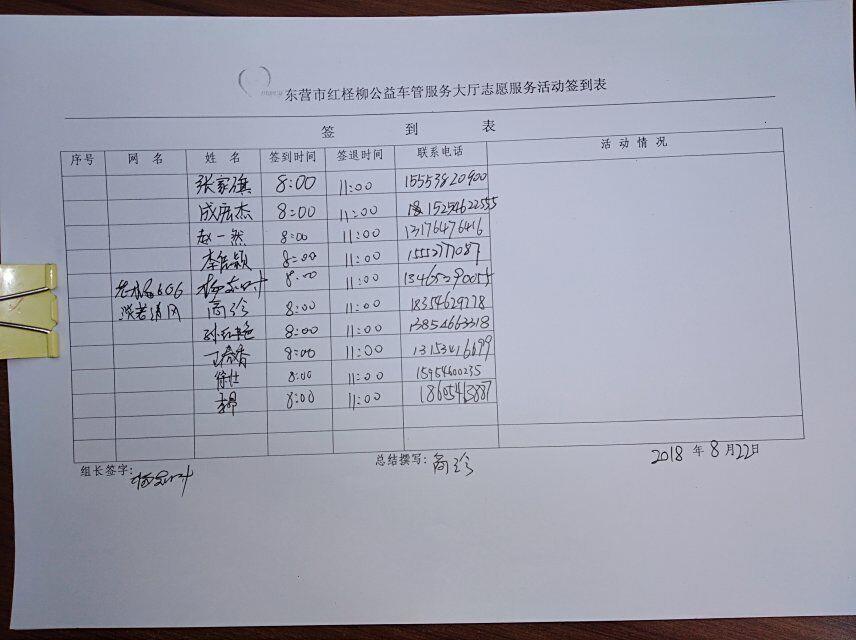 东营市红柽柳公益车管服务大厅志愿服务活动签到表
签到表
序号 网名 姓名 签到时间 签退时间 联系电话 活动情况
张家旗 8:00 11:00 15553820900
成庆杰 8:00 11:00 15254622555
赵一然 8:00 11:00 13176476416
8:00 11:00 15552777087
8:00 11:00 13465290055
淡若清风 高珍 8:00 11:00 18354629778
孙红艳 8:00 11:00 13854663318
丁春香 8:00 11:00
徐仕 8:00 11:00 15954600235
8:00 11:00 18605463887
组长签字: 总结撰写: 高珍 2018年8月22日